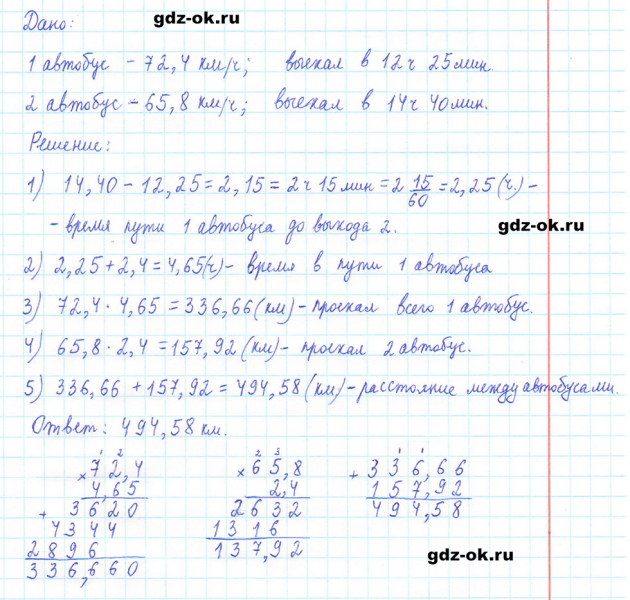 gdz-ok.ru
Дано:
1 автобус - 72,4 км/ч; выехал в 12ч 25мин.
2 автобус - 65,8 км/ч; выехал в 14ч 40мин.
Решение:
1) 14,40 - 12,25 = 2,15 = 2ч 15мин = 2 15/60 = 2,25 (ч.) -
- время пути 1 автобуса до выхода 2.
gdz-ok.ru
2) 2,25 + 2,4 = 4,65(ч) - время в пути 1 автобуса
3) 72,4 · 4,65 = 336,66 (км) - проехал всего 1 автобус.
4) 65,8 · 2,4 = 157,92 (км) - проехал 2 автобус.
5) 336,66 + 157,92 = 494,58 (км) - расстояние между автобусами.
Ответ: 494,58 км.
1 2
× 72,4
4,65
+ 3620
4344
2896
336,660
2 3
× 65,8
2,4
2632
1316
137,92
1 1
+ 336,66
157,92
494,58
gdz-ok.ru